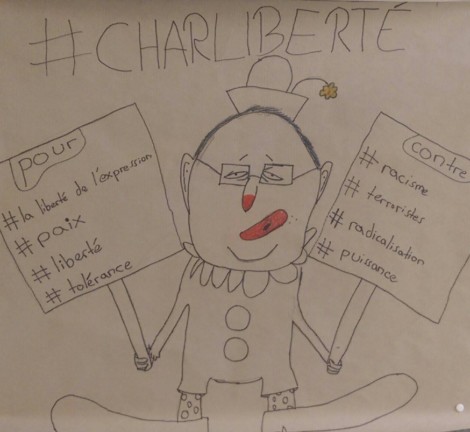 #CHARLIBERTÉ
pour
# la liberté de l'expression
# paix
# liberté
# tolérance
contre
# racisme
# terroristes
# radicalisation
# puissance